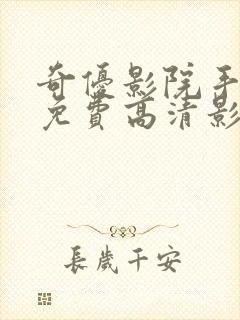 奇優影院手
免費高清影
長歲千安